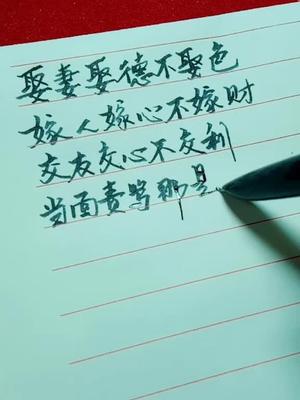 娶妻娶德不娶色
嫁人嫁心不嫁财
交友交心不交利
当面责骂那是